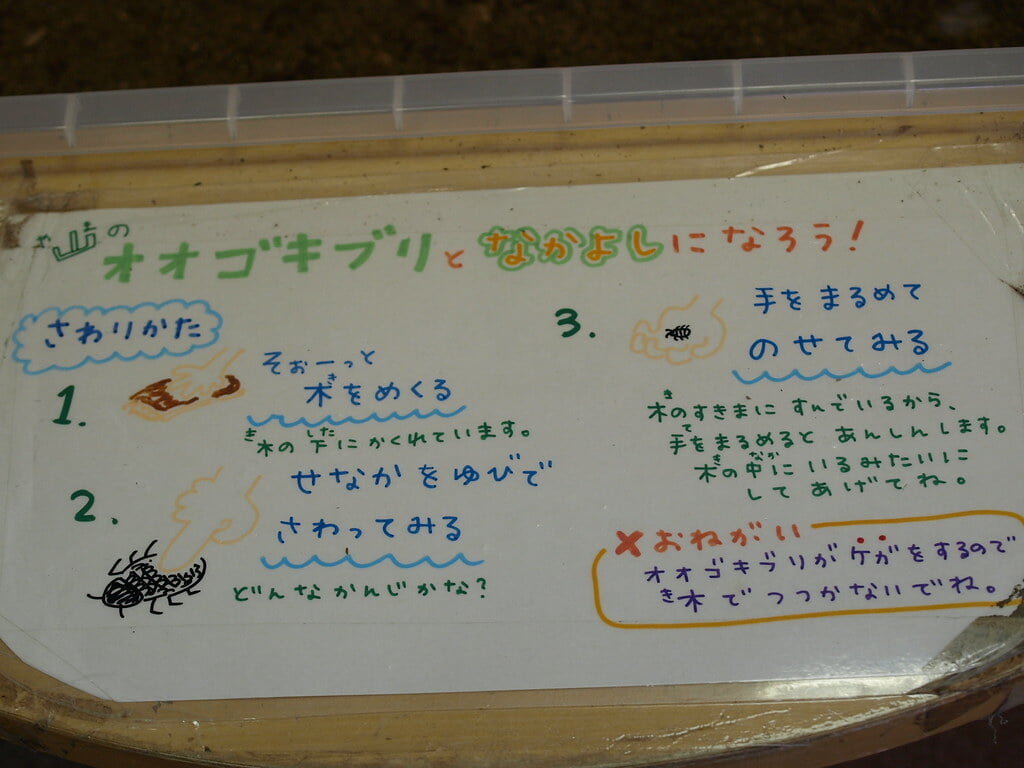 山のオオゴキブリとなかよしになろう!
さわりかた
1.
そぉーっと
木をめくる
木の下にかくれています。
2.
せなかをゆびで
さわってみる
どんなかんじかな?
3.
手をまるめて
のせてみる
木のすきまにすんでいるから、
手をまるめるとあんしんします。
木の中にいるみたいに
してあげてね。
×おねがい
オオゴキブリがケガをするので
木でつつかないでね。